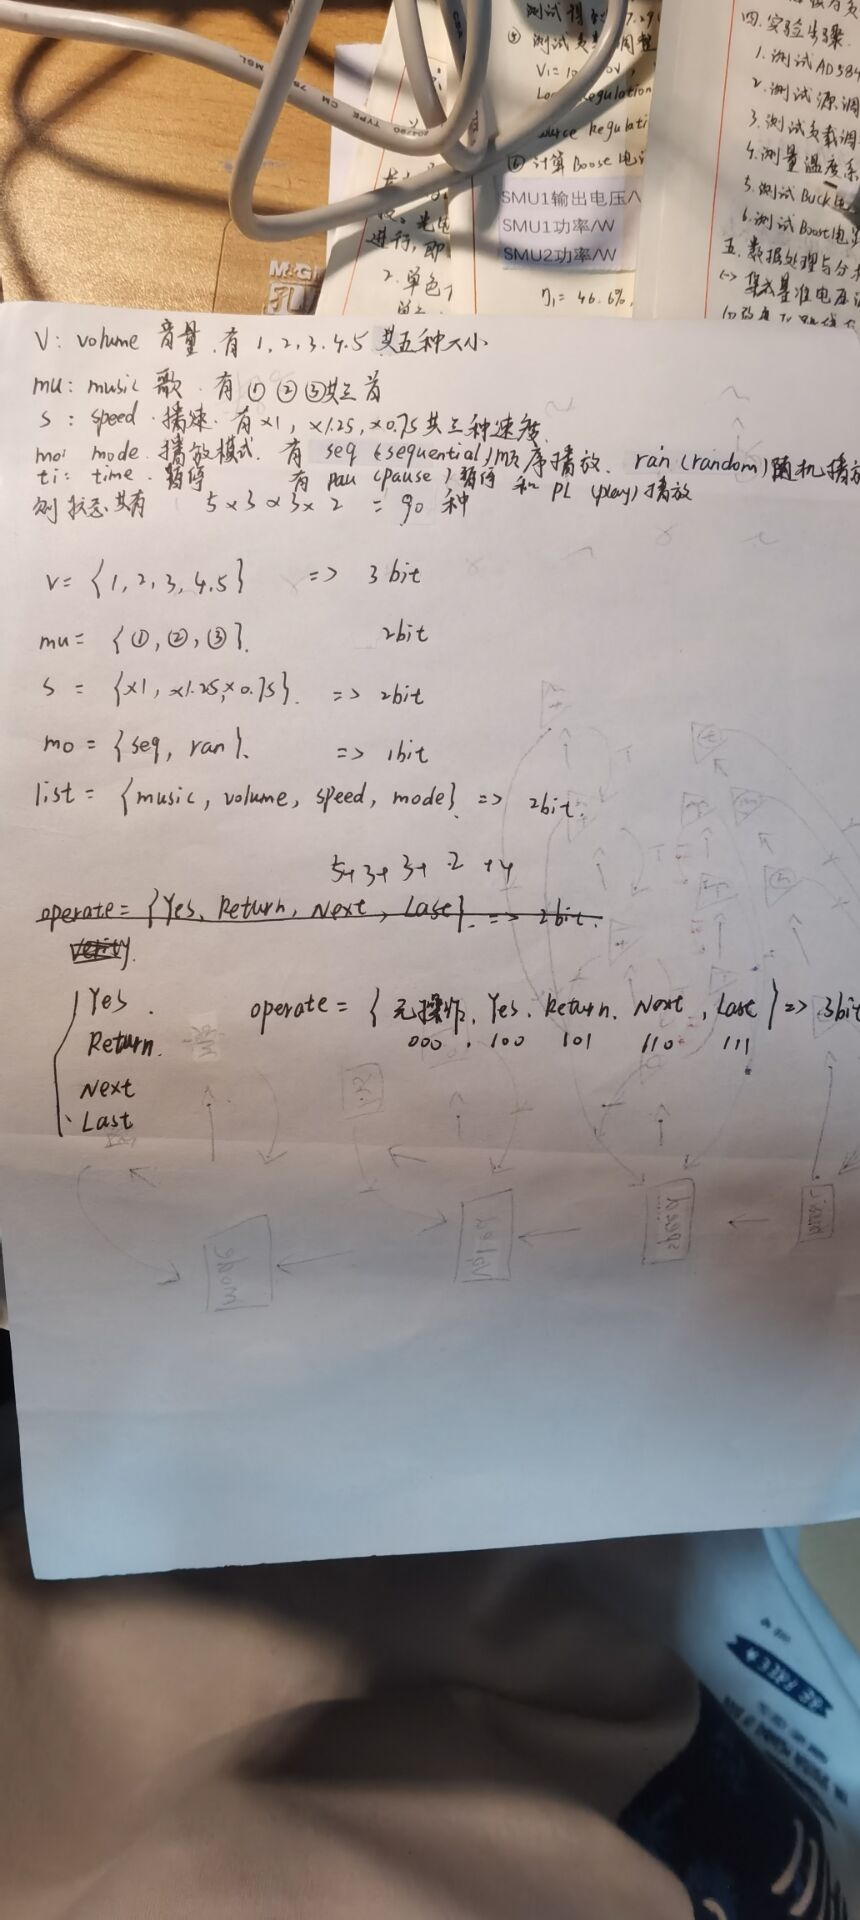 测试
⑤ 测试负 调整
V1= 10
Regulation
Regulati
⑥ 计算Boose 电
SMU1输出电压/
SMU1功率/W
SMU2功率/W
η1= 46.6%.
四.实验步骤.
1.测试AD584
2.测试源调
3.测试负载调
4.测量温度系
5.测试Buck电
6.测试Boost电
五.数据处理与分
进行,即
2.单色
TYPE CM
M&G
V: volume 音量.有 1,2,3,4.5 共五种大小
mu: music 歌.有 ① ② ③共三首
s: speed.播速.有×1, ×1.25, ×0.75共三种速度.
mo: mode.播放模式. 有 seq (sequential)顺序播放. ran (random)随机播放
ti: time. 暂停 有 pau (pause)暂停 和 PL (play)播放
则状态共有 5×3×3×2 = 90 种
V= {1,2,3,4.5} => 3bit
mu= {①,②,③}. 2bit
s = {×1, ×1.25,×0.75}. => 2bit
mo = {seq, ran}. => 1bit
list= {music, volume, speed, mode}. => 2bit.
5+3+3+2+4
operate= {Yes, Return, Next, Last}. => 2bit.
Yes.
Return.
Next
Last
operate= {无操作, Yes, Return, Next, Last} => 3bit
000, 100 101 110 111